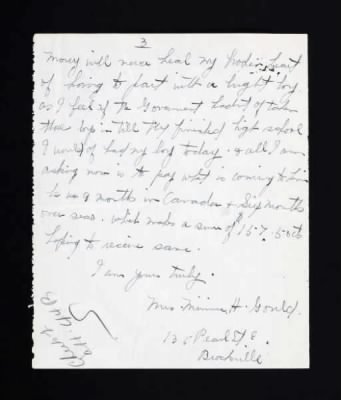 3
Money will never heal my broken heart
of having to part with a bright boy
as I feel if the Goverment hadent of take
those boys in till they finished high school
I would of had my boy today. & all I am
asking now is to pay what is coming to him
to us 9 months in Canada & Six months
over seas. which makes a sum of $157.50cts
hoping to receive same.
I am yours truly.
Mrs Minnie H. Gould.
136 Pearl St E.
Brockville